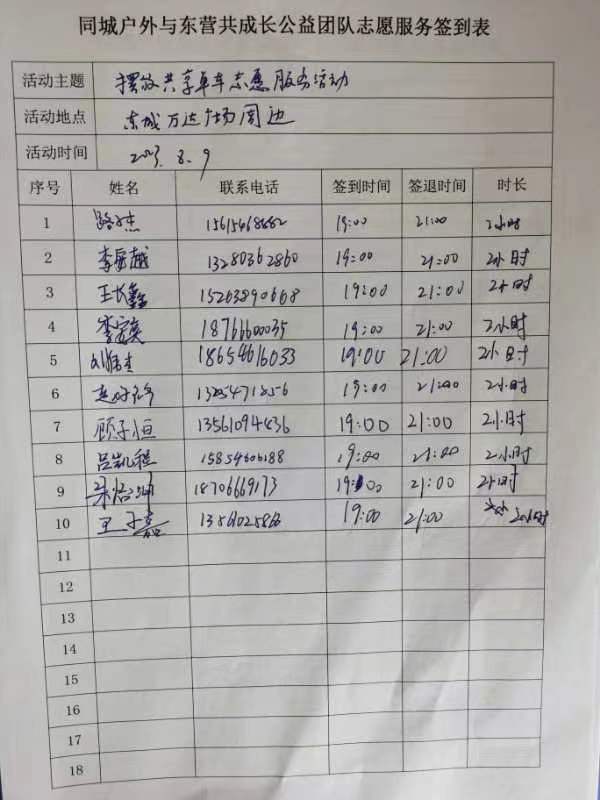 同城户外与东营共成长公益团队志愿服务签到表
活动主题 摆放共享单车志愿服务活动
活动地点 东城万达广场周边
活动时间 2023.8.9
序号 姓名 联系电话 签到时间 签退时间 时长
1 19:00 21:00 2小时
2 李 越 13280362860 19:00 21:00 2小时
3 王长鑫 15263890668 19:00 21:00 2小时
4 李 18766600035 19:00 21:00 2小时
5 18654616033 19:00 21:00 2小时
6 19:00 21:00 2小时
7 顾子恒 13561094436 19:00 21:00 2小时
8 吕凯程 15854606188 19:00 21:00 2小时
9 18706669173 19:00 21:00 2小时
10 王子嘉 19:00 21:00 2小时
11
12
13
14
15
16
17
18